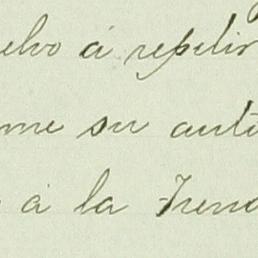 elvo á repetir
me su anti
á la Tren